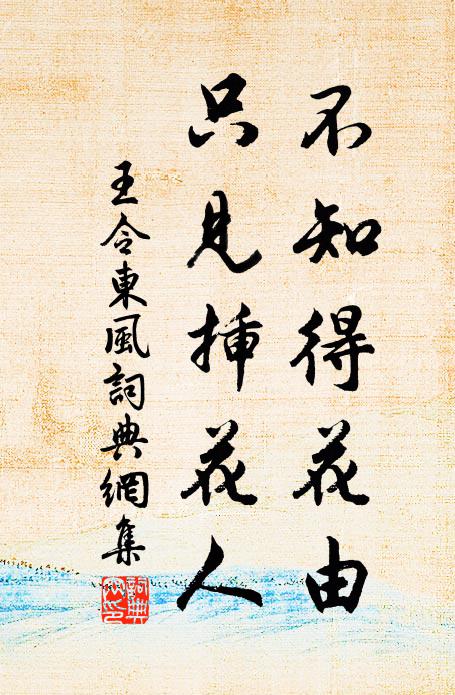 不知得花由
只見挿花人
王令東風詞典網集